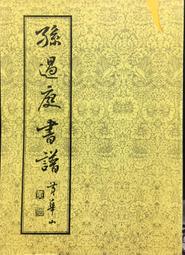 孫過庭書譜